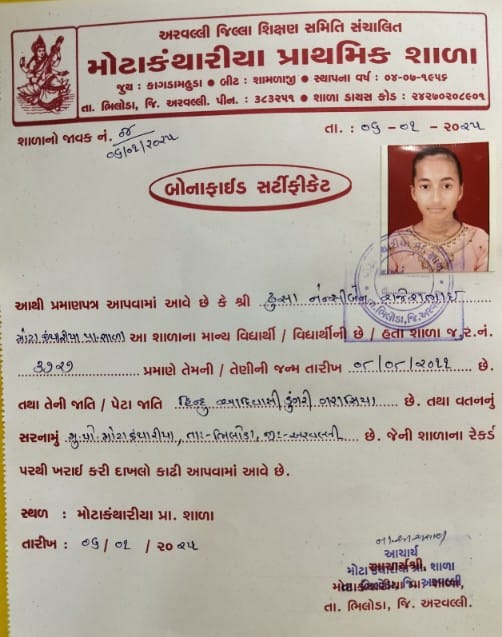 અરવલ્લી જિલ્લા શિક્ષણ સમિતિ સંચાલિત
મોટાકંથારીયા પ્રાથમિક શાળા
જુથ : કાગડામહુડા • બીટ : શામળાજી • સ્થાપના વર્ષ : ૦૪-૦૭-૧૯૫૬
તા. ભિલોડા, જિ. અરવલ્લી. પીન. : ૩૮૩૨૫૧ • શાળા ડાયસ કોડ : ૨૪૨૭૦૨૦૮૯૦૧
શાળાનો જાવક નં.
૦૬/૦૧/૨૦૨૫
તા. : ૦૬ - ૦૧ - ૨૦૨૫
બોનાફાઈડ સર્ટીફીકેટ
આથી પ્રમાણપત્ર આપવામાં આવે છે કે શ્રી ડુસા નન્સીબેન રાજેશભાઈ
મોટા કંથારીયા પ્રા.શાળા આ શાળાના માન્ય વિદ્યાર્થી / વિદ્યાર્થીની છે / હતા શાળા જ.ર.નં.
૩૭૨૧ પ્રમાણે તેમની / તેણીની જન્મ તારીખ ૦૮/૦૮/૨૦૧૧ છે.
તથા તેની જાતિ / પેટા જાતિ હિન્દુ આદિવાસી ડુંગરી ગરાસિયા છે. તથા વતનનું
સરનામું મુ.પો. મોટાકંથારીયા, તા:-ભિલોડા, જી:-અરવલ્લી છે. જેની શાળાના રેકર્ડ
પરથી ખરાઈ કરી દાખલો કાઢી આપવામાં આવે છે.
સ્થળ : મોટાકંથારીયા પ્રા. શાળા
તારીખ : ૦૬ / ૦૧ / ૨૦૨૫
આચાર્ય
આચાર્યશ્રી,
મોટા કંથારીયા પ્રા. શાળા
મોટાકંથારીયા પ્રા. શાળા,
તા. ભિલોડા, જિ. અરવલ્લી.